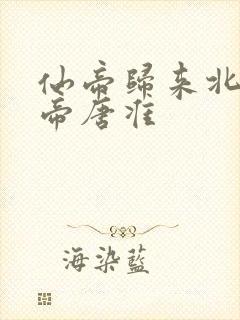 仙帝歸來北
帝唐淮
海染藍